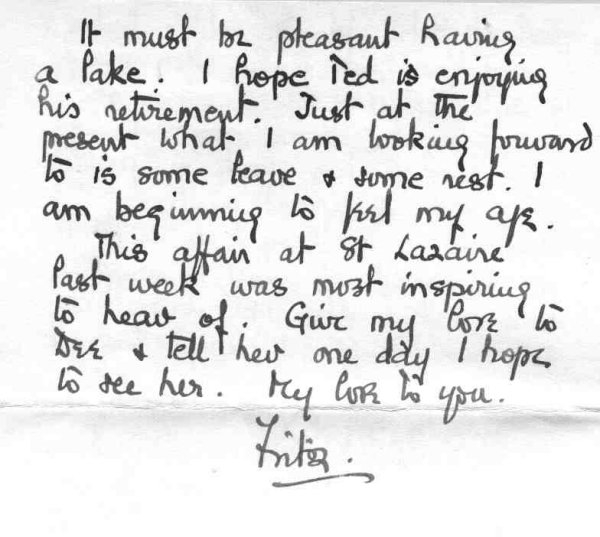 It must be pleasant having
a lake. I hope Ted is enjoying
his retirement. Just at the
present what I am looking forward
to is some leave & some rest. I
am beginning to feel my age.
This affair at St Lazaire
last week was most inspiring
to hear of. Give my love to
Dee & tell her one day I hope
to see her. My love to you.
Fritz.